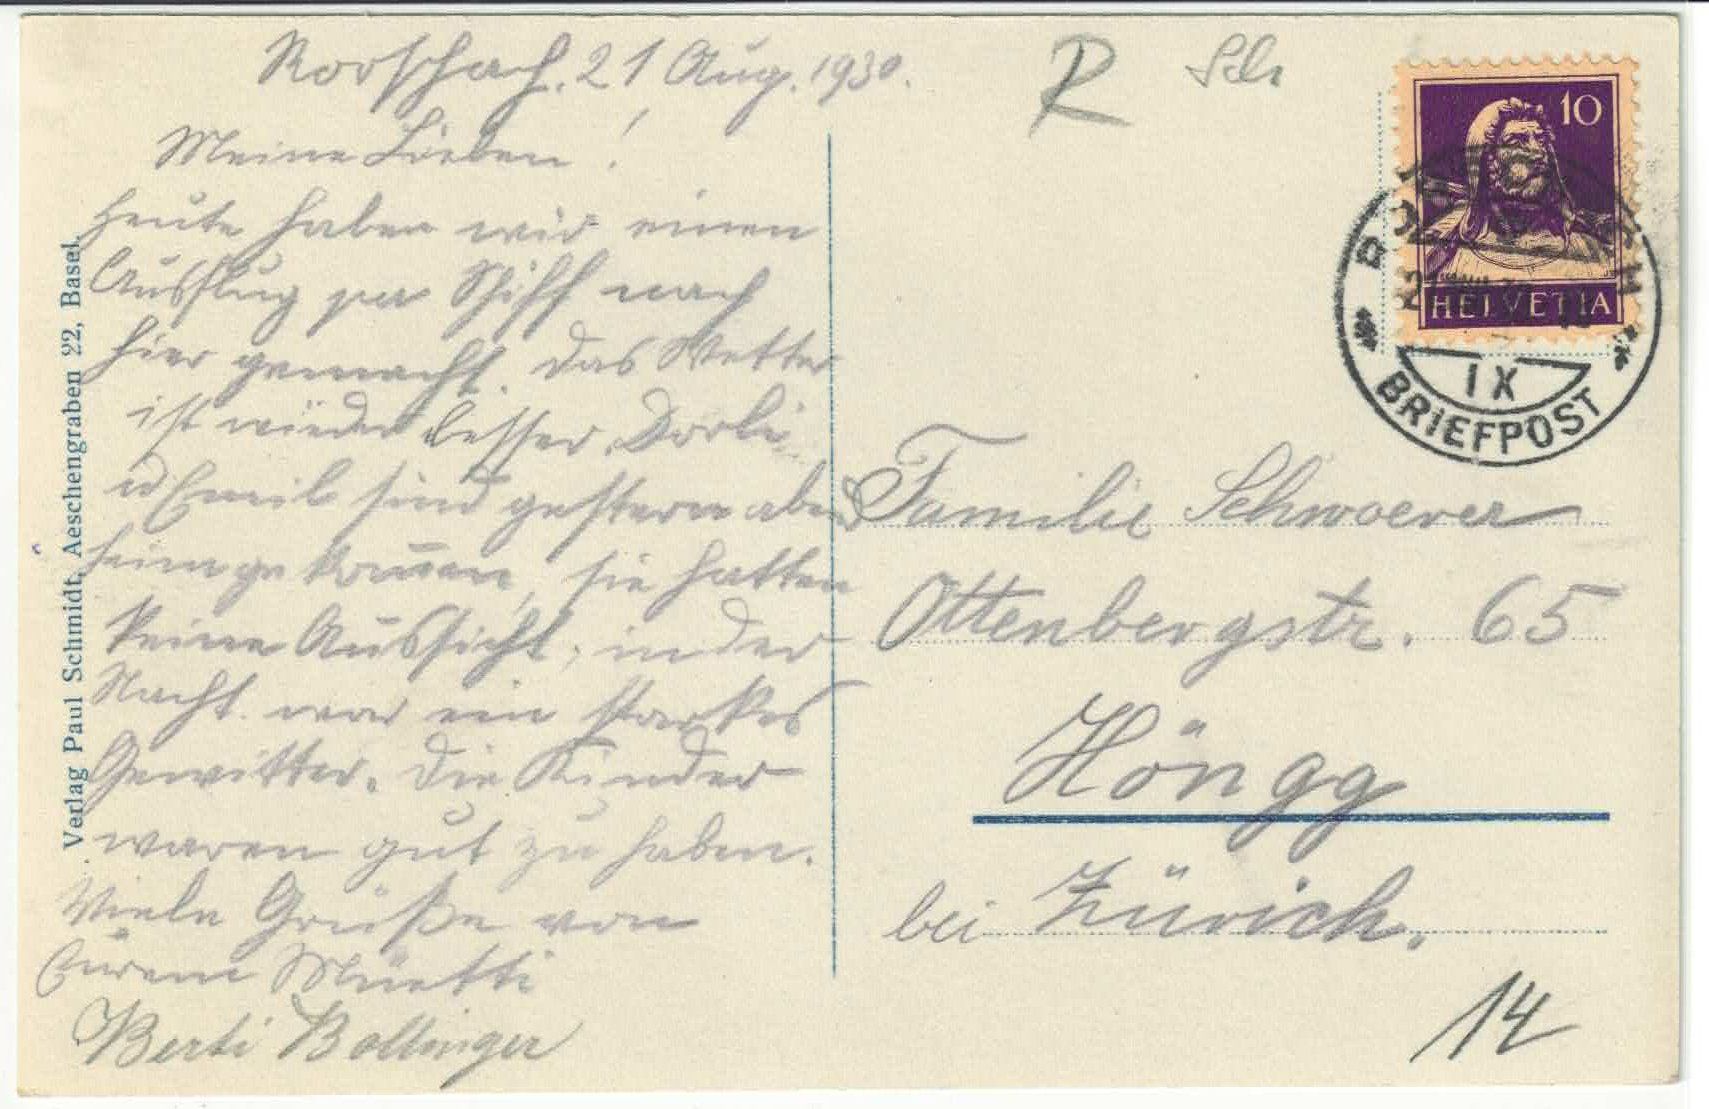 Rorschach, 21 Aug. 1930.
Meine Lieben!
Heute haben wir einen
Ausflug per Schiff nach
hier gemacht. Das Wetter
ist wieder besser, Dorli
u Emil sind gestern abend
heimgekommen, sie hatten
keine Aussicht, in der
Nacht war ein starkes
Gewitter. Die Kinder
waren gut zu haben.
Viele Grüße von
Eurem Müetti
Berti Bollinger
Verlag Paul Schmidt, Aeschengraben 22, Basel.
R Sch
10
HELVETIA
IX
BRIEFPOST
Familie Schwoerer
Ottenbergstr. 65
Höngg
bei Zürich.
14